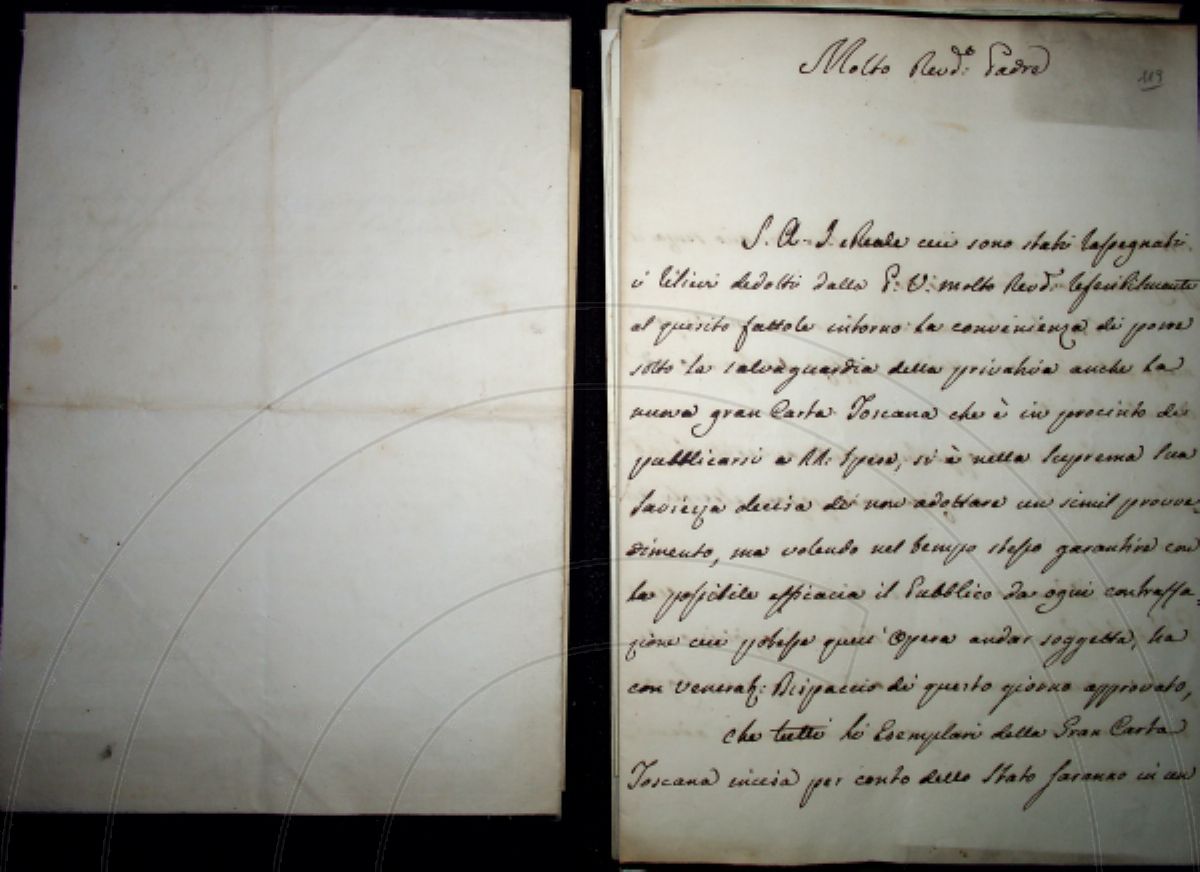 Molto Revd.o Padre
119
S. A. I. e Reale cui sono stati rassegnati
i rilievi dedotti dalla P: V: molto Revd.
al quesito fattole intorno la convenienza di porre
sotto la salvaguardia della privativa anche la
nuova gran Carta Toscana che è in procinto di
pubblicarsi a RR: Spese, si è nella Suprema Sua
Saviezza decisa di non adottare un simil provve=
dimento, ma volendo nel tempo stesso garantire con
la possibile efficacia il Pubblico da ogni contraffa=
zione cui potesse quest' Opera andar soggetta, ha
con venerat: Dispaccio di questo giorno approvato,
che tutti li Esemplari della Gran Carta
Toscana incisa per conto dello Stato saranno in un